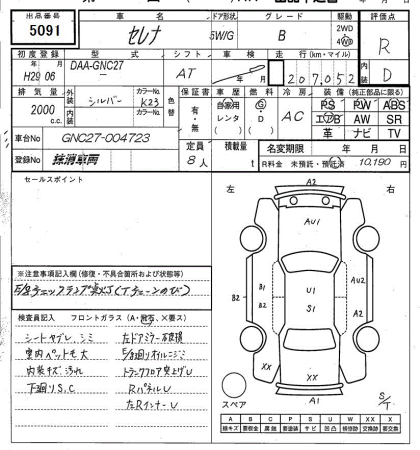 出品番号
5091
車名
セレナ
ドア形状
5W/G
グレード
B
駆動
2WD
4WD
評価点
R
D
初度登録
H29年 06月
型式
DAA-GNC27
シフト
AT
車検
走行(km・マイル)
207,052
排気量
2000 c.c.
外装
シルバー
内装
カラーNo.
K23
カラーNo.
色替
保証書
有・無
車歴
自家用
レンタ
燃料
G
D
冷房
AC
装備 (純正部品に限る)
PS PW ABS
エアB AW SR
革 ナビ TV
車台No
GNC27-004723
定員
8人
積載量
t
名変期限
年 月 日
登録No
抹消車両
R料金 未預託・預託済
10,190 円
セールスポイント
左
右
A2
AU1
B1
U1
AU2
B2
B2
S1
A2
XX
XX
XX
A1
スペア
S/T
※注意事項記入欄(修復・不具合箇所および状態等)
検査員記入
フロントガラス(A・飛石、×要ス)
シートヤブレ シミ
左ドアミラー不良
室内ペット毛大
内装キズ汚れ
トランクフロア突上げU
下廻りS.C
RパネルU
左RインナーU
A B C P S U W XX X
線キズ 要板金 腐蝕 要塗装 サビ 凹凸 補修跡 交換済 要交換